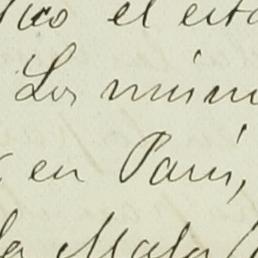 el est
Los mism
en Paris,
la Mala